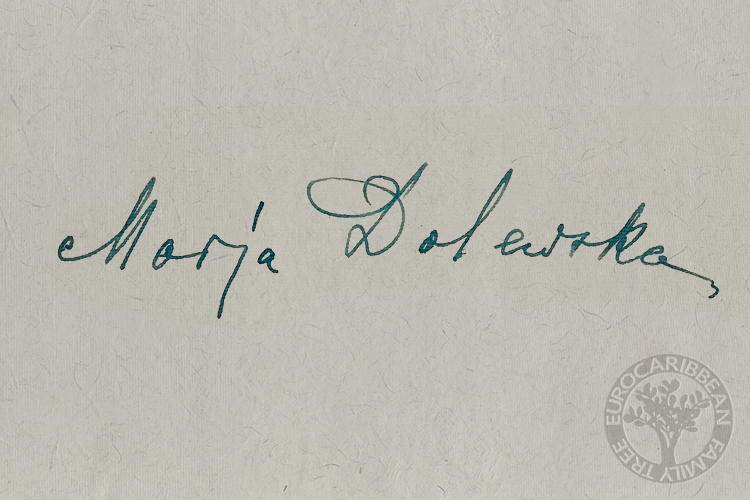 Marja Dolewska
EUROCARIBBEAN
FAMILY TREE